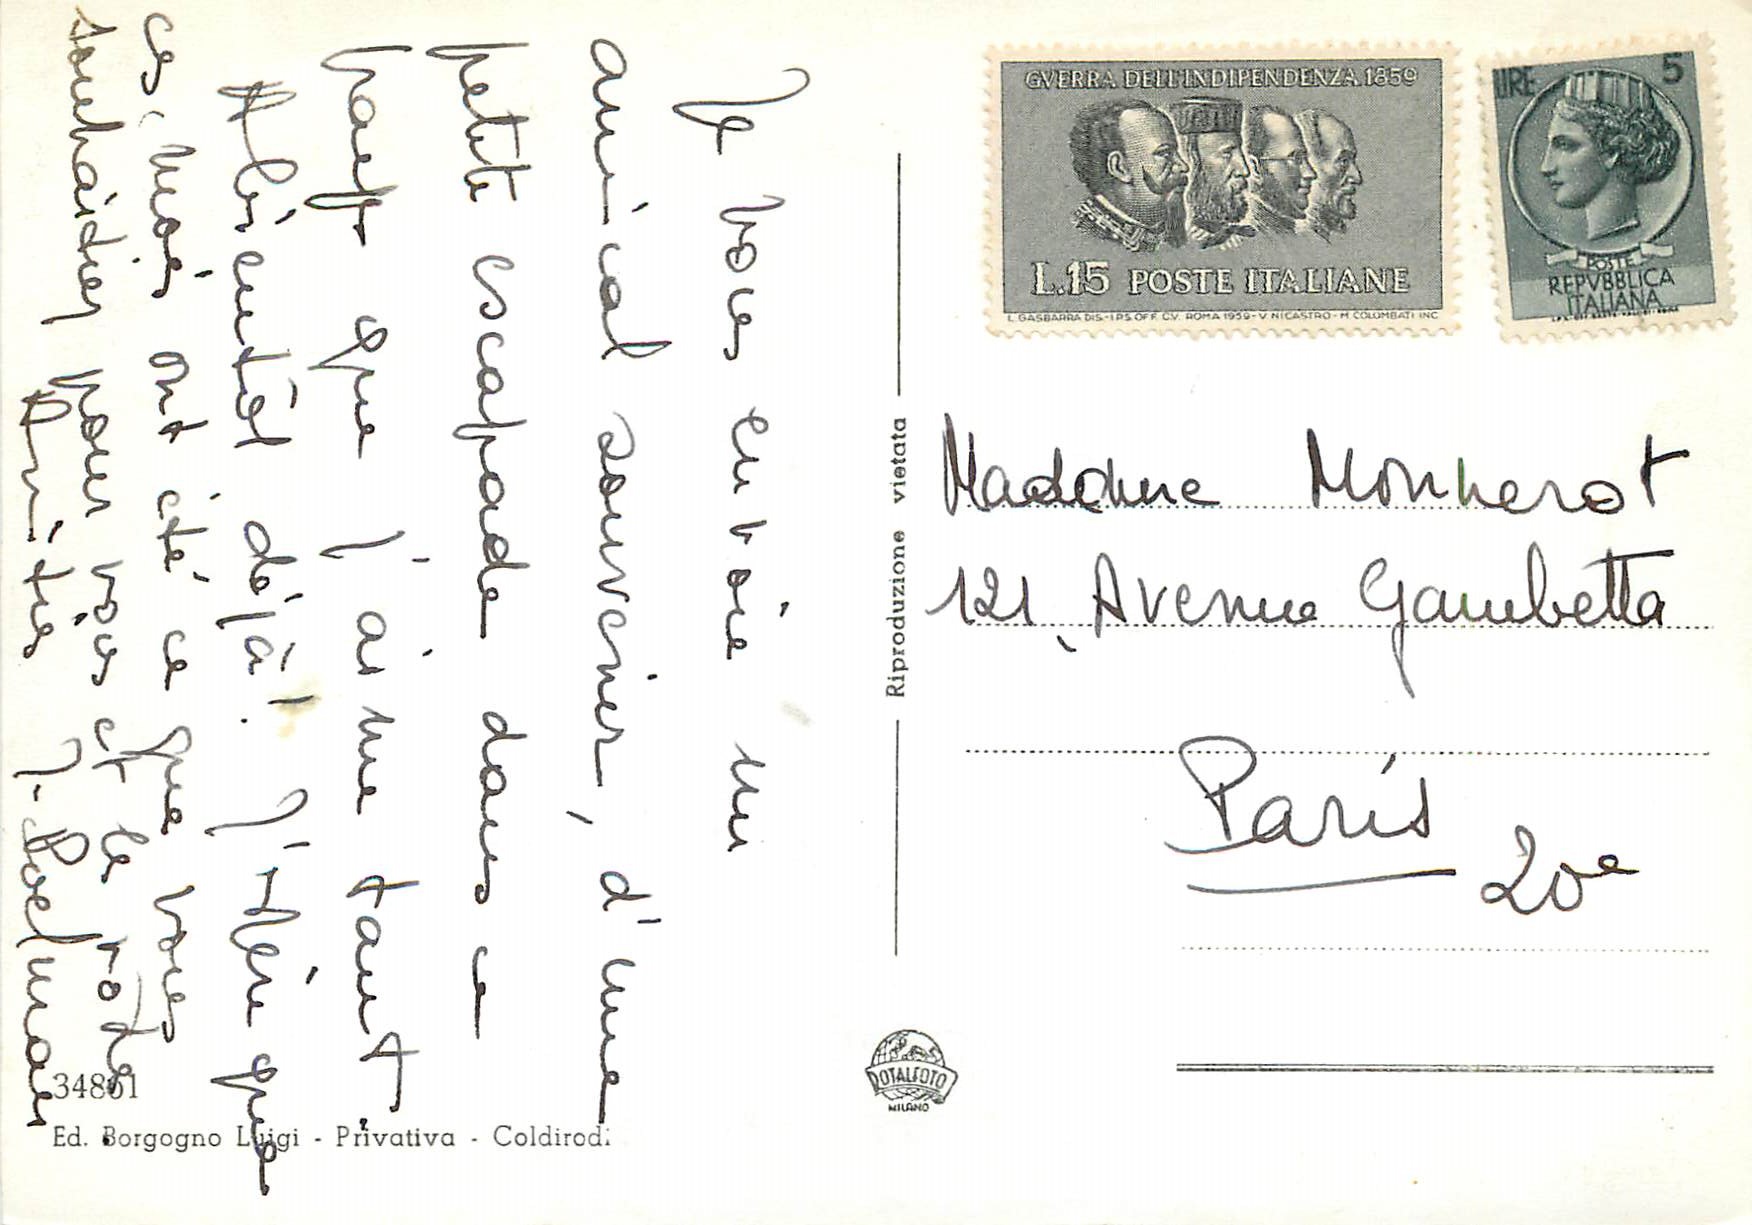 Je vous envoie un
amical souvenir, d'une
petite escapade dans ce
pays que j'aime tant.
A bientôt déjà! J'espère que
ces mois ont été ce que vous
souhaitiez pour vous et le vôtre
Amitiés J. Poelman
GVERRA DELL'INDIPENDENZA 1859
L.15 POSTE ITALIANE
L. GASBARRA DIS.-I.P.S. OFF. C.V. ROMA 1959-V. NICASTRO-M. COLOMBATI INC
LIRE 5
POSTE
REPVBBLICA
ITALIANA
Riproduzione vietata
Madame Monnerot
121, Avenue Gambetta
Paris
20e
ROTALFOTO
MILANO
34861
Ed. Borgogno Luigi - Privativa - Coldirodi